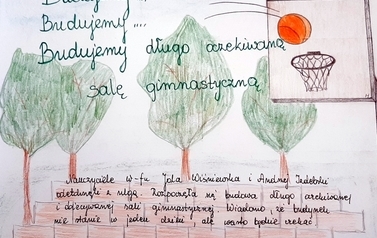 Budujemy ....
Budujemy ....
Budujemy długo oczekiwaną
salę gimnastyczną
Nauczyciele w-fu Jola Wiśniewska i Andrzej
odetchnęli z ulgą. Rozpoczęła się budowa długo oczekiwanej
i obiecywanej sali gimnastycznej. Wiadomo, że budynek
nie stanie w jeden dzień, ale warto będzie czekać